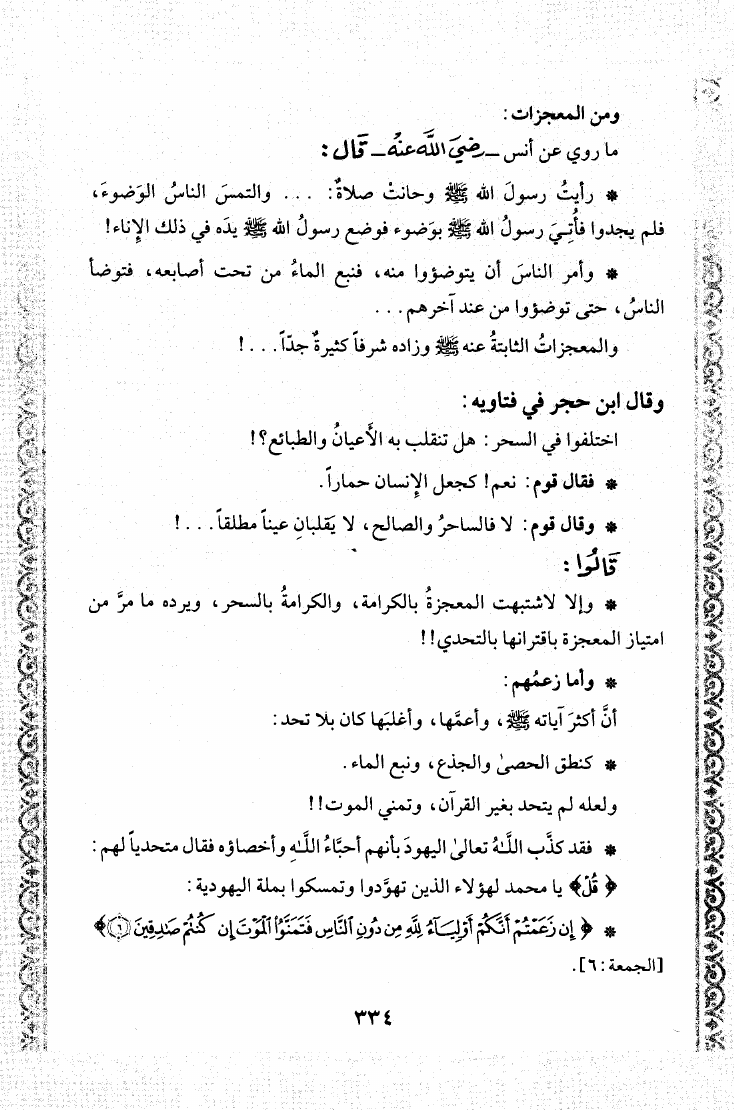 ومن المعجزات:
ما روي عن أنس ــ رَضِيَ اللَّهُ عَنهُ ــ قَالَ:
* رأيتُ رسولَ الله ﷺ وحانتْ صلاةٌ: ... والتمسَ الناسُ الوَضوءَ،
فلم يجدوا فأُتِيَ رسولُ الله ﷺ بوَضوء فوضع رسولُ الله ﷺ يدَه في ذلك الإناء!
* وأمر الناسَ أن يتوضؤوا منه، فنبع الماءُ من تحت أصابعه، فتوضأ
الناسُ، حتى توضؤوا من عند آخرهم...
والمعجزاتُ الثابتةُ عنه ﷺ وزاده شرفاً كثيرةٌ جدّاً...!
وقال ابن حجر في فتاويه:
اختلفوا في السحر: هل تنقلب به الأَعيانُ والطبائع؟!
* فقال قوم: نعم! كجعل الإنسان حماراً.
* وقال قوم: لا فالساحرُ والصالح، لا يَقلبانِ عيناً مطلقاً...!
قَالُوا:
* وإلا لاشتبهت المعجزةُ بالكرامة، والكرامةُ بالسحر، ويرده ما مرَّ من
امتياز المعجزة باقترانها بالتحدي!!
* وأما زعمُهم:
أنَّ أكثرَ آياته ﷺ، وأعمَّها، وأغلبَها كان بلا تحد:
* كنطق الحصىٰ والجذع، ونبع الماء.
ولعله لم يتحد بغير القرآن، وتمني الموت!!
* فقد كذَّب اللَّـهُ تعالىٰ اليهودَ بأنهم أحبَّاءُ اللَّـهِ وأخصاؤه فقال متحدياً لهم:
﴿ قُلْ﴾ يا محمد لهؤلاء الذين تهوَّدوا وتمسكوا بملة اليهودية:
* ﴿ إِن زَعَمْتُمْ أَنَّكُمْ أَوْلِيَآءُ لِلَّهِ مِن دُونِ ٱلنَّاسِ فَتَمَنَّوُا۟ ٱلْمَوْتَ إِن كُنتُمْ صَـٰدِقِينَ ۝٦﴾
[الجمعة: ٦].
٣٣٤